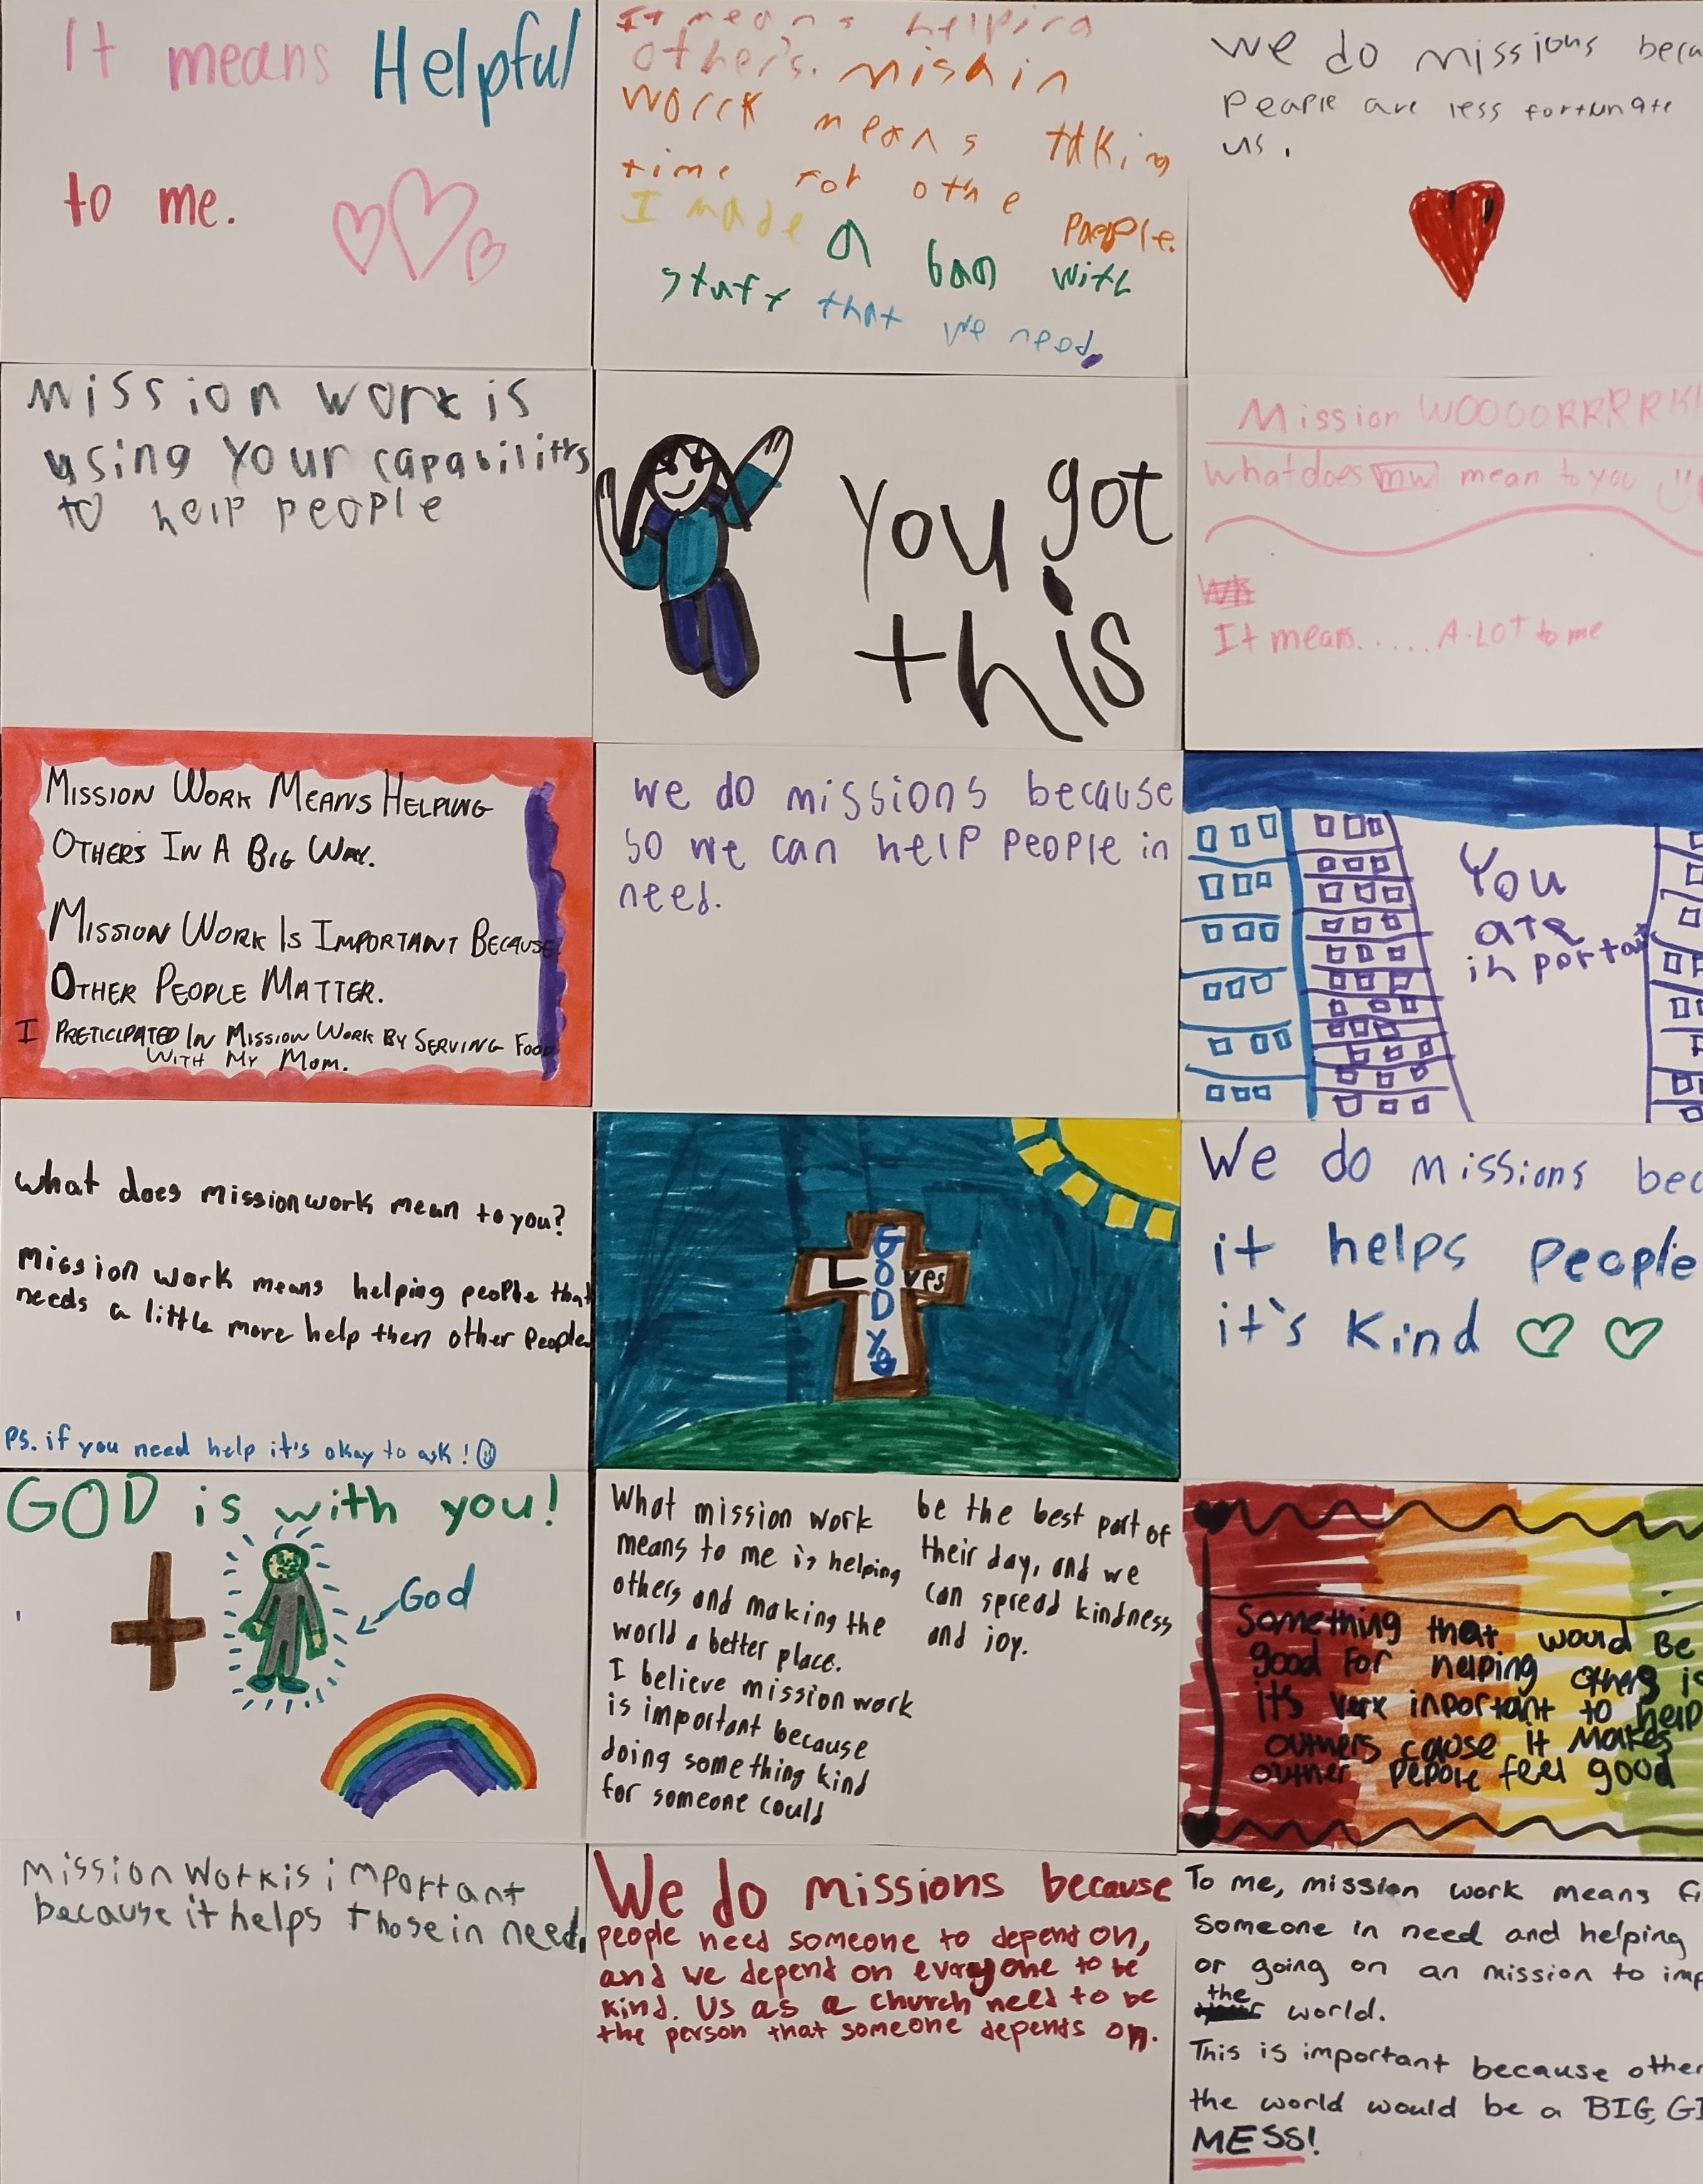 It means Helpful
to me.
It means helping
other's. mishin
worck means taking
time for othe people.
I made a bag with
stuff that we need.
We do missions beca
peaple are less fortunate
us.
Mission work is
using your capabilitys
to help people
You got
this
Mission WOOOORRRRK
what does mw mean to you
It means..... A-LOT to me
MISSION WORK MEANS HELPING
OTHERS IN A BIG WAY.
MISSION WORK IS IMPORTANT BECAUSE
OTHER PEOPLE MATTER.
I PRETICIPATED IN MISSION WORK BY SERVING FOOD
WITH MY MOM.
we do missions because
so we can help people in
need.
You
are
inporta
What does mission work mean to you?
Mission work means helping people that
needs a little more help then other people
Ps. if you need help it's okay to ask!
GOD
Loves
YOU
We do missions bec
it helps people
it's kind
GOD is with you!
God
What mission work
means to me is helping
others and making the
world a better place.
I believe mission work
is important because
doing something kind
for someone could
be the best part of
their day, and we
can spread kindness
and joy.
Something that would Be
good For helping others is
it's very inportant to help
outhers cause it Makes
outher pepole feel good
Mission work is important
because it helps those in need.
We do missions because
people need someone to depend on,
and we depend on everyone to be
kind. Us as a church need to be
the person that someone depends on.
To me, mission work means fi
someone in need and helping
or going on an mission to imp
the world.
This is important because other
the world would be a BIG, GI
MESS!